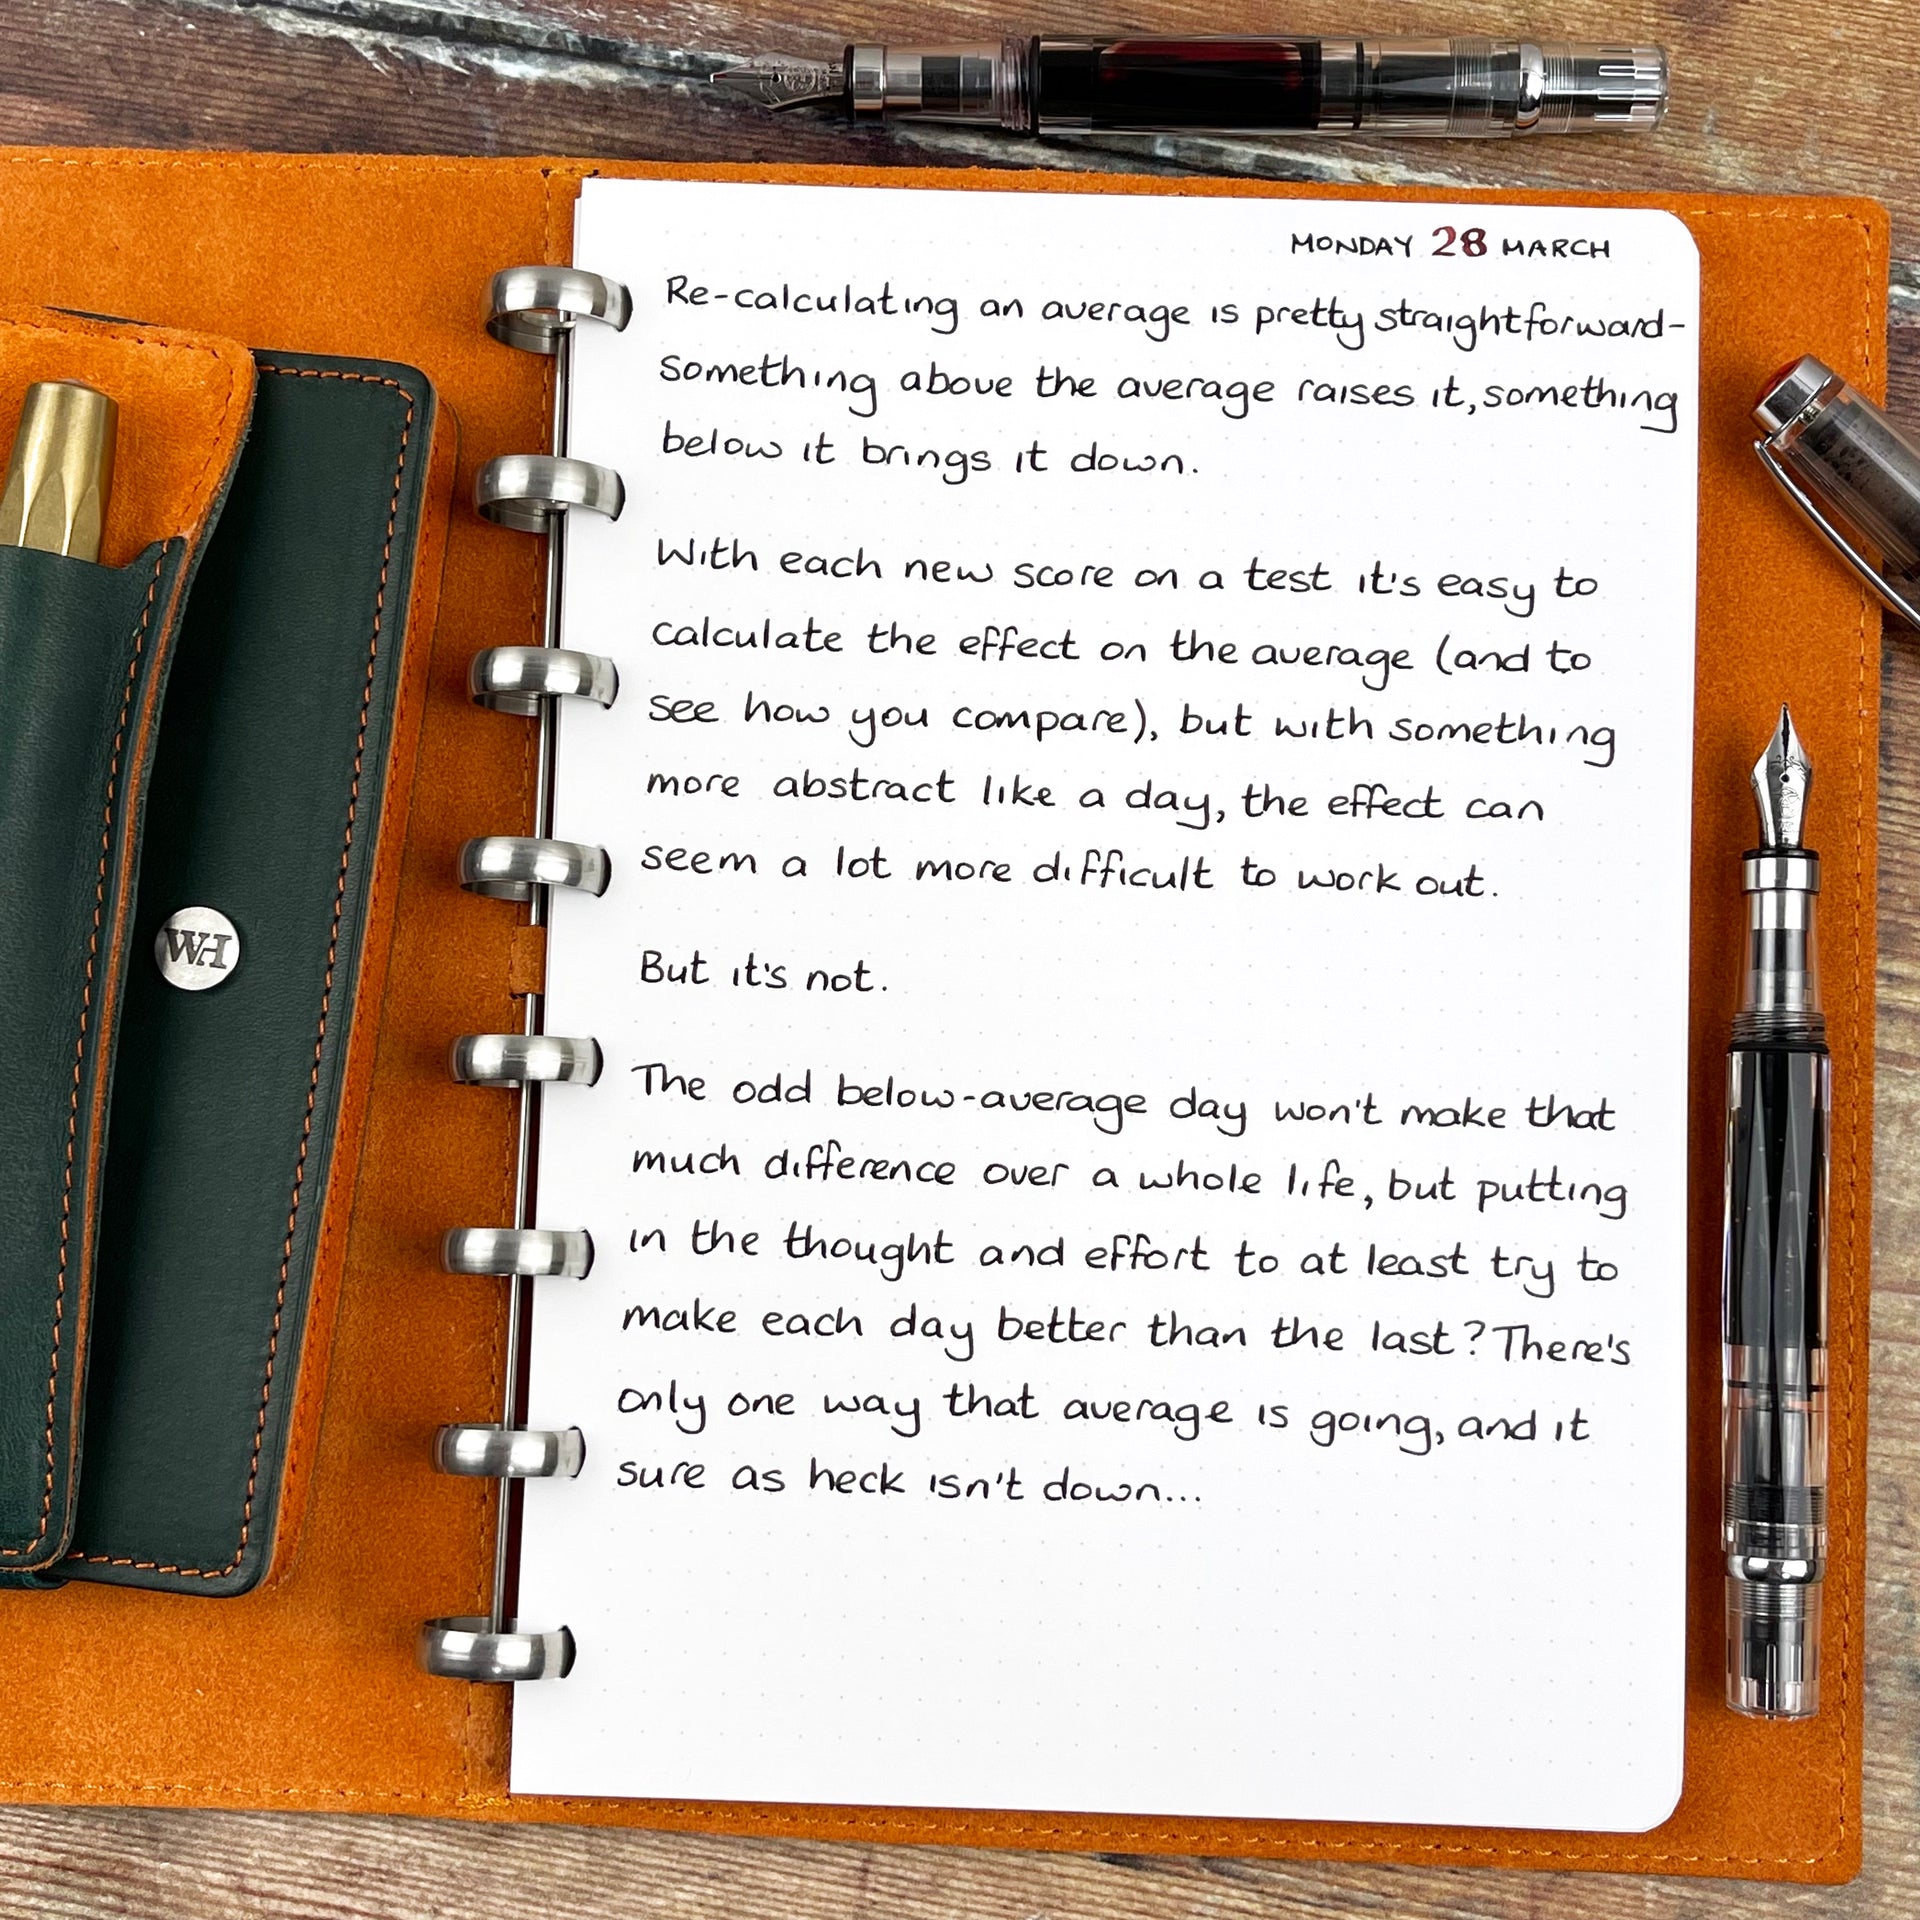 MONDAY 28 MARCH
Re-calculating an average is pretty straightforward-
something above the average raises it, something
below it brings it down.
With each new score on a test it's easy to
calculate the effect on the average (and to
see how you compare), but with something
more abstract like a day, the effect can
seem a lot more difficult to work out.
But it's not.
The odd below-average day won't make that
much difference over a whole life, but putting
in the thought and effort to at least try to
make each day better than the last? There's
only one way that average is going, and it
sure as heck isn't down...
WH